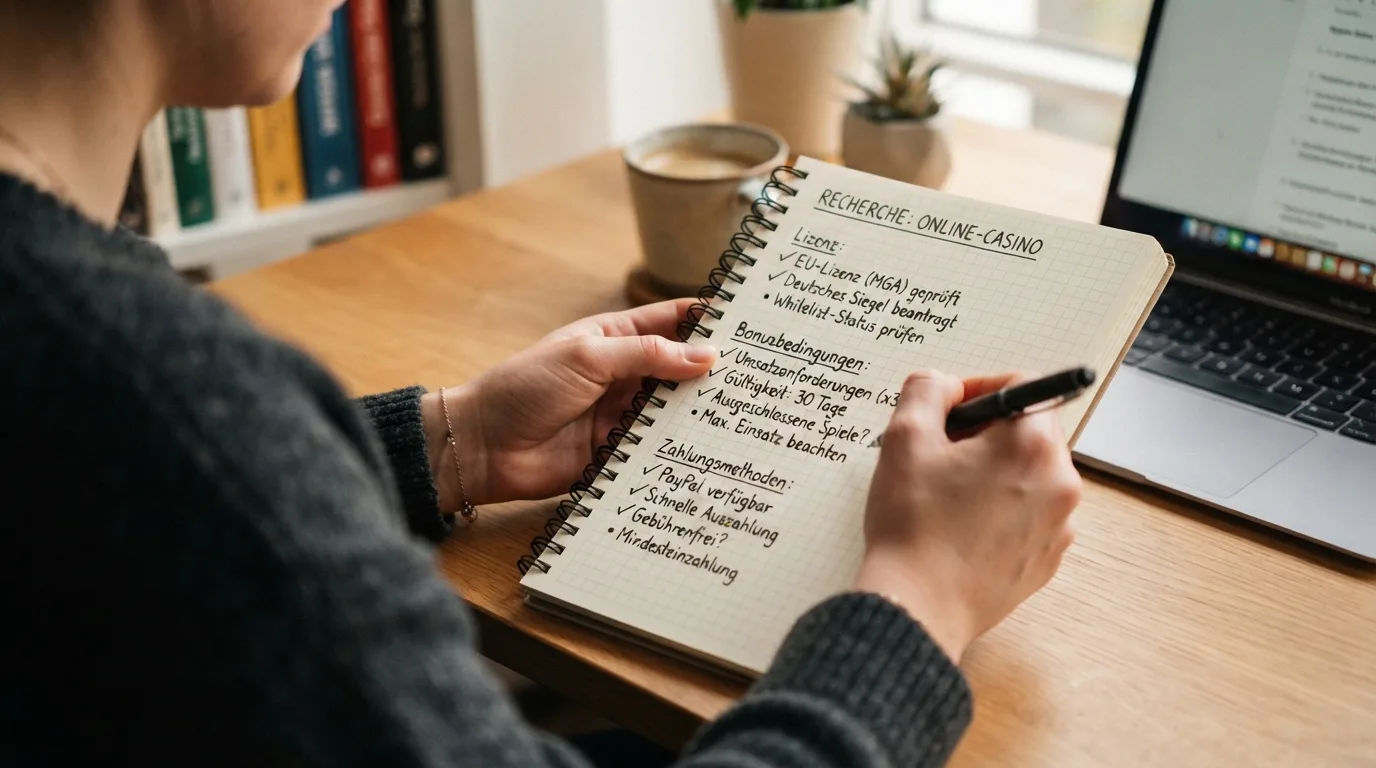 RECHERCHE: ONLINE-CASINO
Lizenz:
✓ EU-Lizenz (MGA) geprüft
✓ Deutsches Siegel beantragt
• Whitelist-Status prüfen
Bonusbedingungen:
✓ Umsatzanforderungen (x3
✓ Gültigkeit: 30 Tage
✓ Ausgeschlossene Spiele?
• Max. Einsatz beachten
Zahlungsmethoden:
✓ PayPal verfügbar
✓ Schnelle Auszahlung
✓ Gebührenfrei?
• Mindesteinzahlung